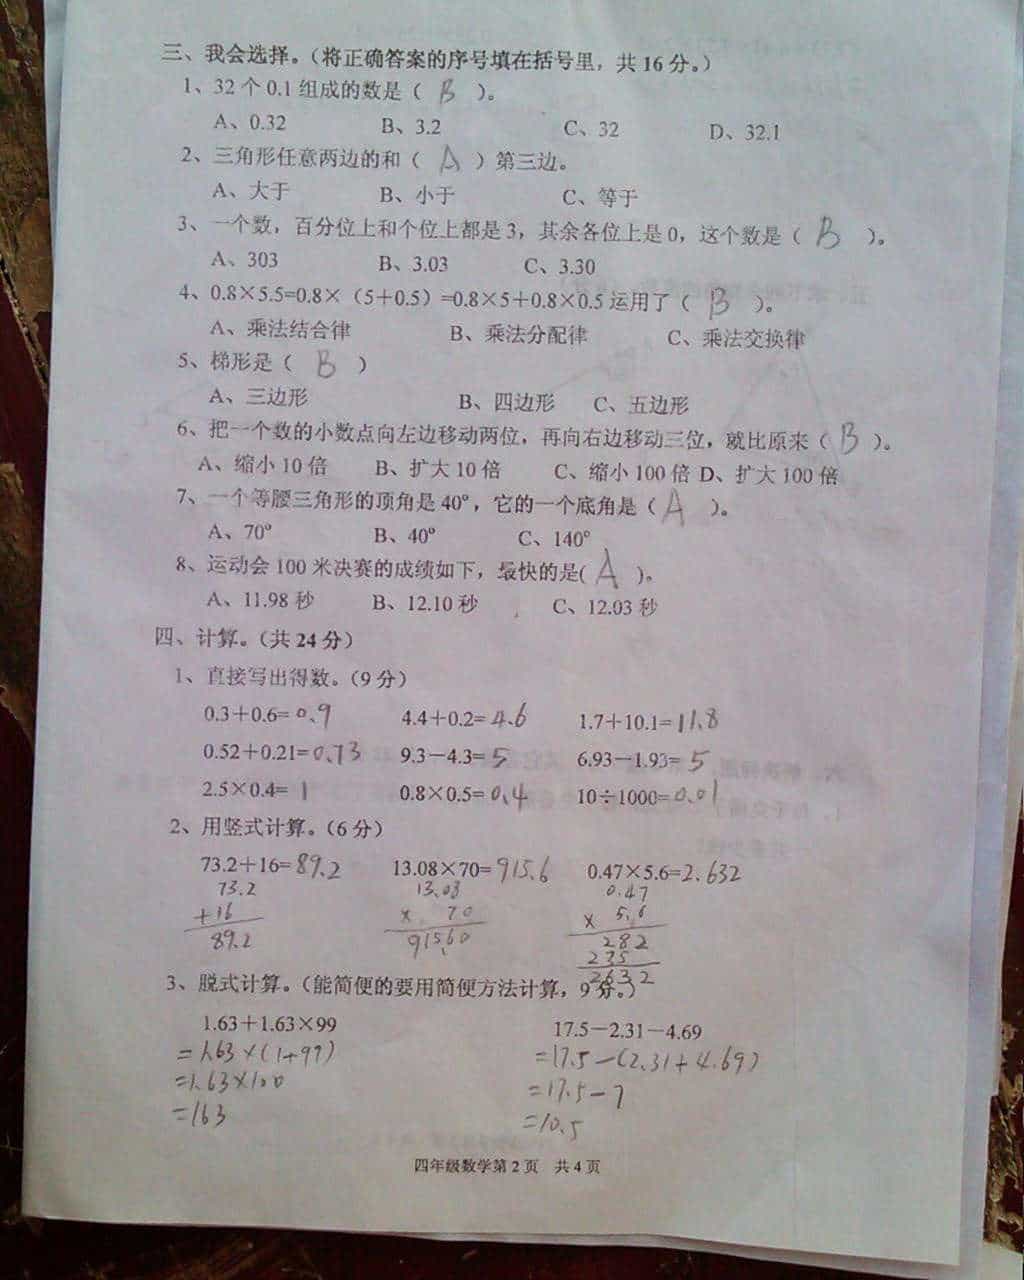 三、我会选择。（将正确答案的序号填在括号里，共16分。）
1、32个0.1组成的数是（ B ）。
A、0.32 B、3.2 C、32 D、32.1
2、三角形任意两边的和（ A ）第三边。
A、大于 B、小于 C、等于
3、一个数，百分位上和个位上都是3，其余各位上是0，这个数是（ B ）。
A、303 B、3.03 C、3.30
4、0.8×5.5=0.8×（5+0.5）=0.8×5+0.8×0.5运用了（ B ）。
A、乘法结合律 B、乘法分配律 C、乘法交换律
5、梯形是（ B ）
A、三边形 B、四边形 C、五边形
6、把一个数的小数点向左边移动两位，再向右边移动三位，就比原来（ B ）。
A、缩小10倍 B、扩大10倍 C、缩小100倍 D、扩大100倍
7、一个等腰三角形的顶角是40°，它的一个底角是（ A ）。
A、70° B、40° C、140°
8、运动会100米决赛的成绩如下，最快的是( A )。
A、11.98秒 B、12.10秒 C、12.03秒
四、计算。（共24分）
1、直接写出得数。（9分）
0.3+0.6=0.9 4.4+0.2=4.6 1.7+10.1=11.8
0.52+0.21=0.73 9.3-4.3=5 6.93-1.93=5
2.5×0.4=1 0.8×0.5=0.4 10÷1000=0.01
2、用竖式计算。（6分）
73.2+16=89.2 13.08×70=915.6 0.47×5.6=2.632
73.2 13.08 0.47
+16 × 70 × 5.6
89.2 91560 282
235
2632
3、脱式计算。（能简便的要用简便方法计算，9分。）
1.63+1.63×99 17.5-2.31-4.69
=1.63×(1+99) =17.5-(2.31+4.69)
=1.63×100 =17.5-7
=163 =10.5
四年级数学第2页 共4页